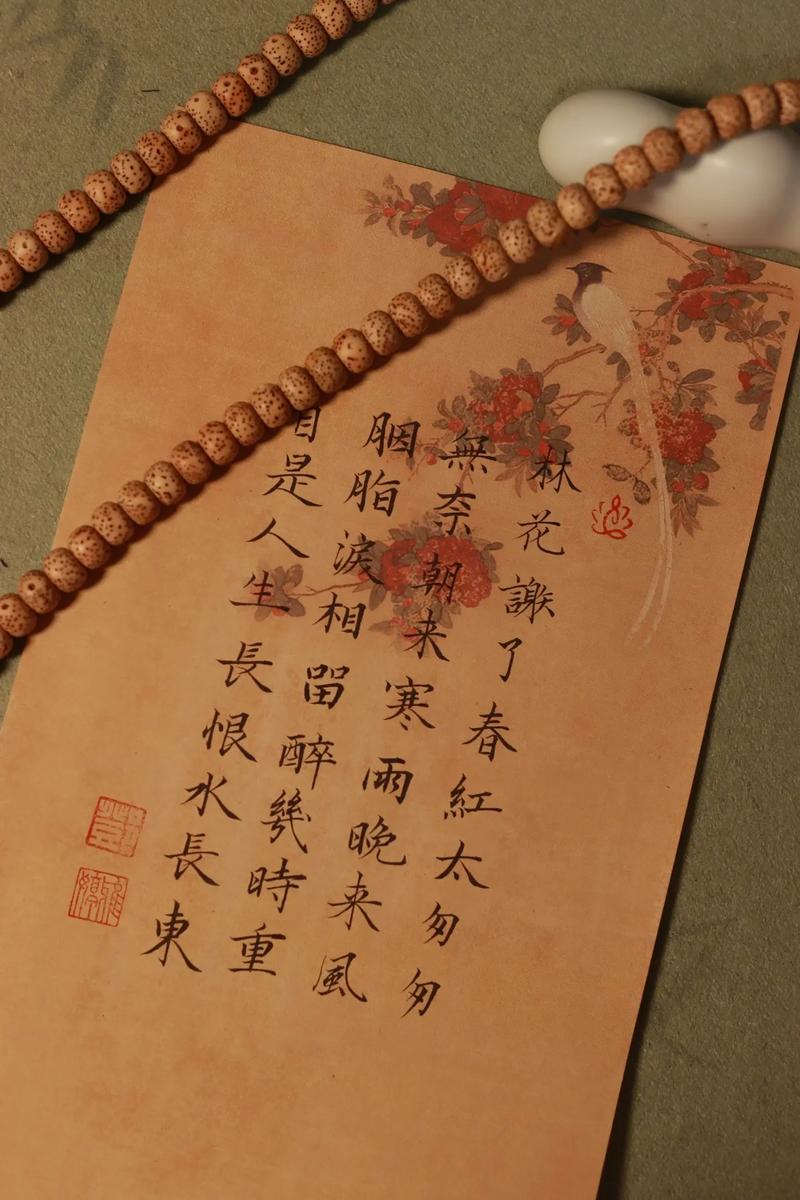 林花謝了春紅太匆匆
無奈朝来寒雨晚来風
胭脂淚相留醉幾時重
自是人生長恨水長東